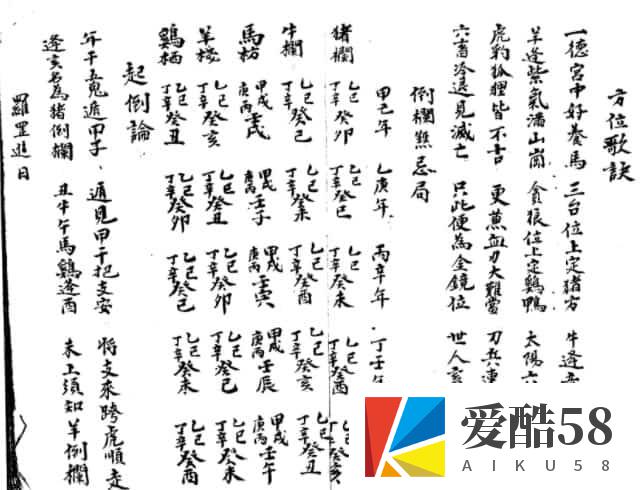 方位歌訣
一德宮中好養馬 三台位上定猪方 牛逢
羊逢紫氣潘山崗 貪狼位上定鷄鴨 太陽六
虎豹狐狸皆不吉 更薰血刃大難當 刀兵連
六畜冷退見滅亡 只此便為金鏡位 世人
倒欄煞忌局
甲己年 乙庚年 丙辛年 丁壬年
猪欄 乙己丁辛癸卯 乙己丁辛癸巳 乙己丁辛癸未 乙己丁辛癸酉 乙己丁辛癸亥
牛欄 乙己丁辛癸巳 乙己丁辛癸未 乙己丁辛癸酉 乙己丁辛癸亥 乙己丁辛癸丑
馬枋 甲戊庚丙壬戌 甲戊庚丙壬子 甲戊庚丙壬寅 甲戊庚丙壬辰 甲戊庚丙壬午
羊棧 乙己丁辛癸亥 乙己丁辛癸丑 乙己丁辛癸卯 乙己丁辛癸巳 乙己丁辛癸未
鷄栖 乙己丁辛癸丑 乙己丁辛癸卯 乙己丁辛癸巳 乙己丁辛癸未 乙己丁辛癸酉
起倒論
年干五鬼遁甲子 遁見甲干把支安 將支來跨虎順走
逢亥名為猪倒欄 丑牛午馬鷄逢酉 未上須知羊倒欄
羅罡進日
爱酷58
AIKU58